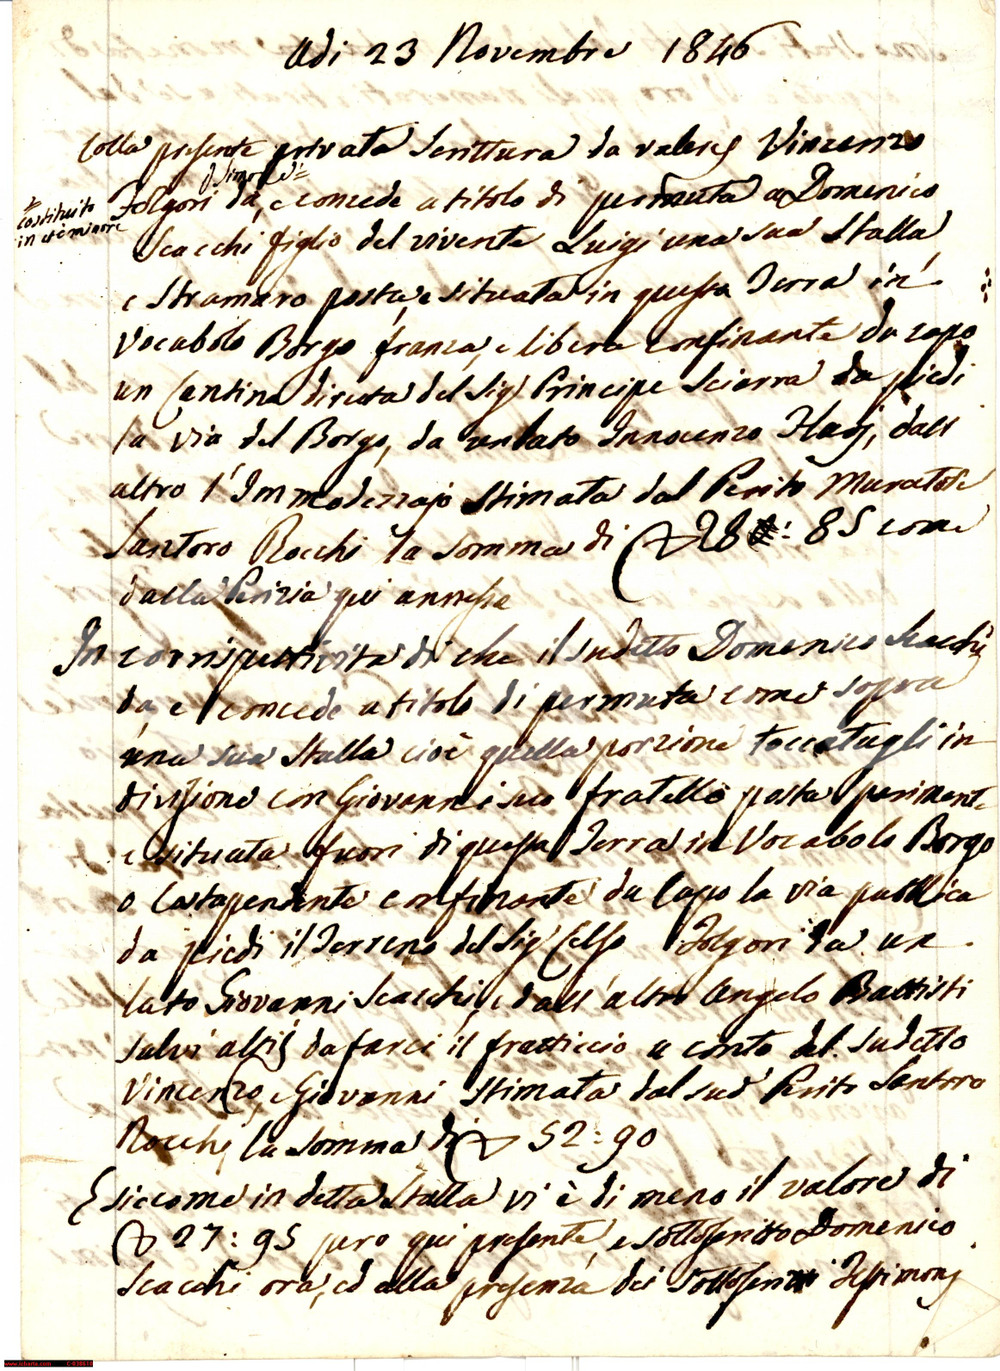 Adi 23 Novembre 1846
Colla presente privata Scrittura da valere Vincenzo
Folgori dà, e concede a titolo di permuta a Domenico
costituito
in età minore
Scacchi figlio del vivente Luigi una sua Stalla
e Stramaro posta, e situata in questa Terra in
Vocabolo Borgo franca, e libera confinante da capo
un Cantina diruta del Sig Principe Sciarra da piedi
la via del Borgo, da un lato Innocenzo, dall
altro l'Immodezzajo Stimata dal Perito Muratore
Santoro Rocchi la somma di 28: 85 come
dalla Perizia qui annessa
In corrispettività di che il sudetto Domenico Scacchi
da e concede a titolo di permuta come sopra
una sua Stalla cioè quella porzione toccatagli in
divizione con Giovanni suo fratello posta parimente
e situata fuori di questa Terra in Vocabolo Borgo
o Costapendente confinante da Capo la via pubblica
da piedi il Terreno del Sig Celso Folgori da un
lato Giovanni Scacchi, e dall'altro Angelo Battisti
salvi altri da farci il fratticcio a conto del sudetto
Vincenzo, e Giovanni Stimata dal sud Perito Santoro
Rocchi la somma di 52:90
E siccome in detta Stalla vi è di meno il valore di
27:95 pero qui presente, e sottoscritto Domenico
Scacchi ora, ed alla presenza dei Sottoscritti Testimonj